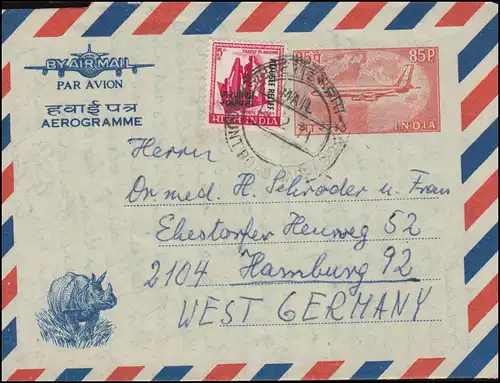 BY AIR MAIL
PAR AVION
हवाई पत्र
AEROGRAMME
FAMILY PLANNING
REFUGEE RELIEF
भारत INDIA
85P
INDIA
Herrn
Dr med. H. Schröder u. Frau
Ehestorfer Heuweg 52
2104 Hamburg 92
WEST GERMANY